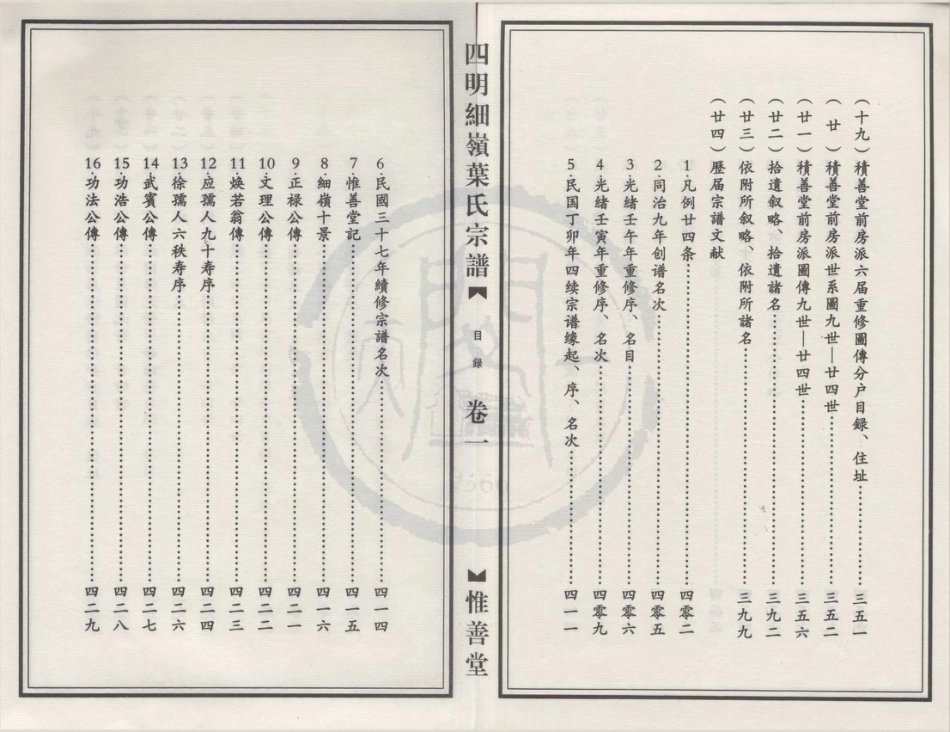 （十九）積善堂前房派六届重修圖傳分户目録、住址……三五一
（廿　）積善堂前房派世系圖九世—廿四世……三五二
（廿一）積善堂前房派圖傳九世—廿四世……三五六
（廿二）拾遺叙略、拾遺諸名……三九二
（廿三）依附所叙略、依附所諸名……三九九
（廿四）歷届宗譜文献
1·凡例廿四条……四零二
2·同治九年创谱名次……四零五
3·光緒壬午年重修序、名目……四零六
4·光緒壬寅年重修序、名次……四零九
5·民国丁卯年四续宗谱缘起、序、名次……四一一
四明細嶺葉氏宗譜
目録
卷一
惟善堂
6·民國三十七年續修宗譜名次……四一四
7·惟善堂記……四一五
8·細嶺十景……四一六
9·正禄公傳……四二一
10·文理公傳……四二二
11·焕若翁傳……四二三
12·应孺人九十寿序……四二四
13·徐孺人六秩寿序……四二六
14·武賓公傳……四二七
15·功浩公傳……四二八
16·功法公傳……四二九